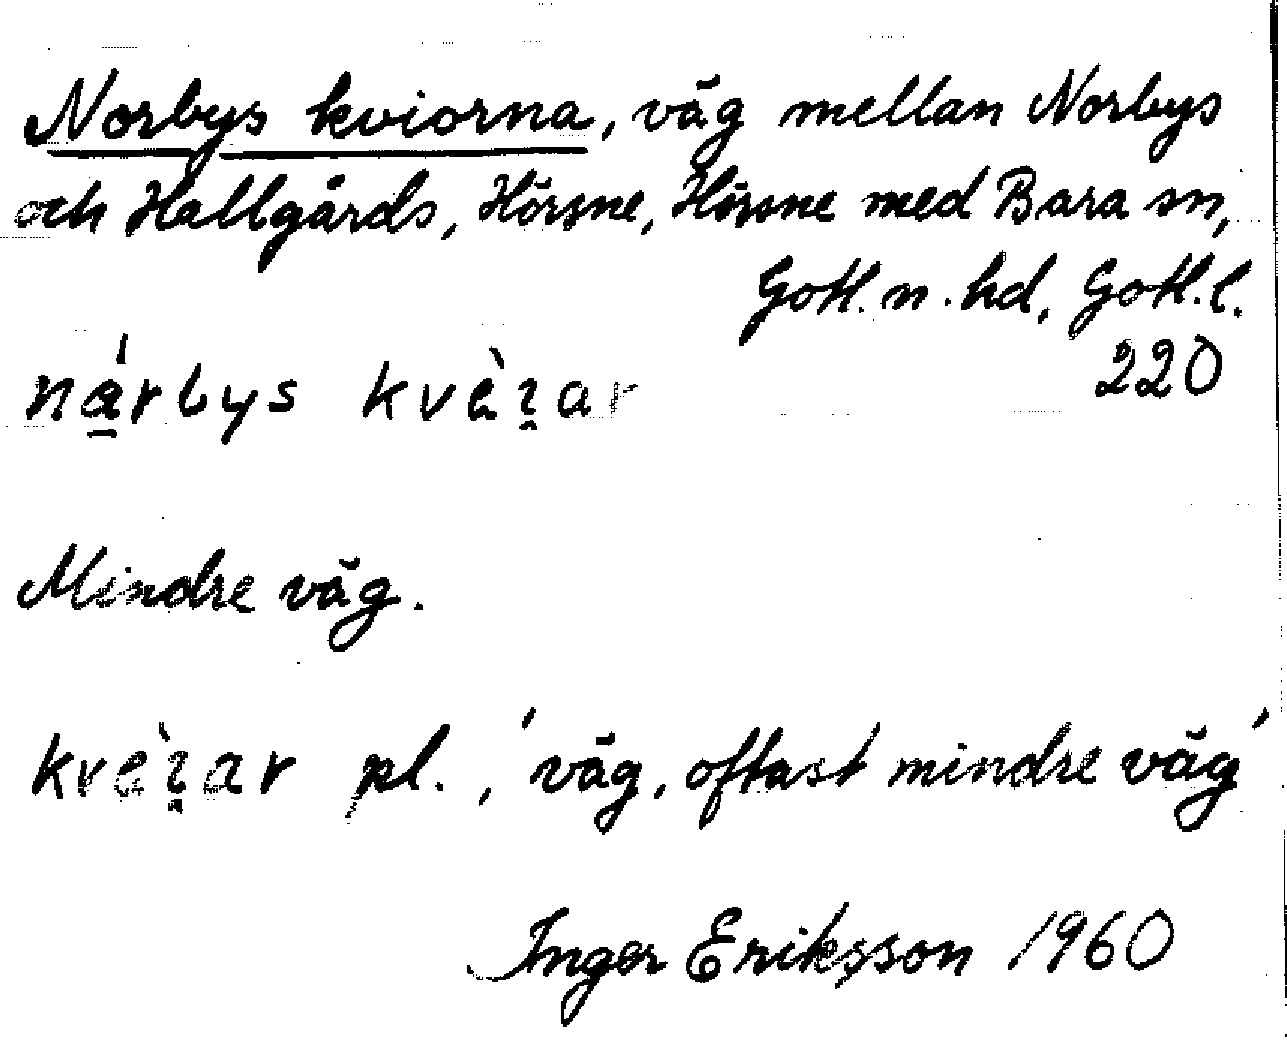 Norbys kviorna, väg mellan Norbys
och Hallgårds, Hörsne, Hörsne med Bara sn,
Gotl. n. hd, Gotl. l.
220
Mindre väg.
pl., 'väg, oftast mindre väg'
Inger Eriksson 1960